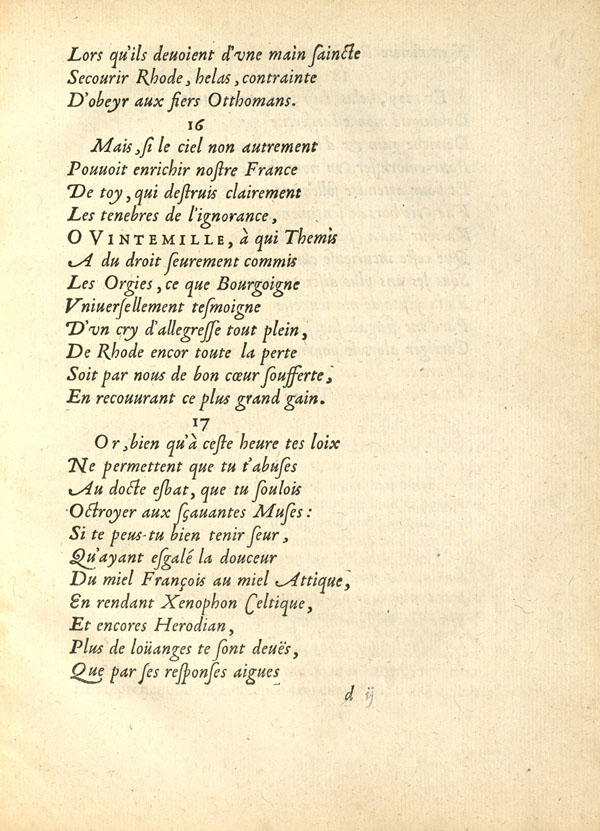 Lors qu'ils deuoient d'vne main ſaincte
Secourir Rhode, helas, contrainte
D'obeyr aux fiers Otthomans.
16
Mais, ſi le ciel non autrement
Pouuoit enrichir noſtre France
De toy, qui deſtruis clairement
Les tenebres de l'ignorance,
O VINTEMILLE, à qui Themis
A du droit ſeurement commis
Les Orgies, ce que Bourgoigne
Vniuerſellement teſmoigne
D'vn cry d'allegreſſe tout plein,
De Rhode encor toute la perte
Soit par nous de bon cœur ſoufferte,
En recouurant ce plus grand gain.
17
Or, bien qu'à ceſte heure tes loix
Ne permettent que tu t'abuſes
Au docte eſbat, que tu ſoulois
Octroyer aux ſçauantes Muſes:
Si te peus-tu bien tenir ſeur,
Qu'ayant eſgalé la douceur
Du miel François au miel Attique,
En rendant Xenophon Celtique,
Et encores Herodian,
Plus de loüanges te ſont deuës,
Que par ſes reſponſes aigues
d ij